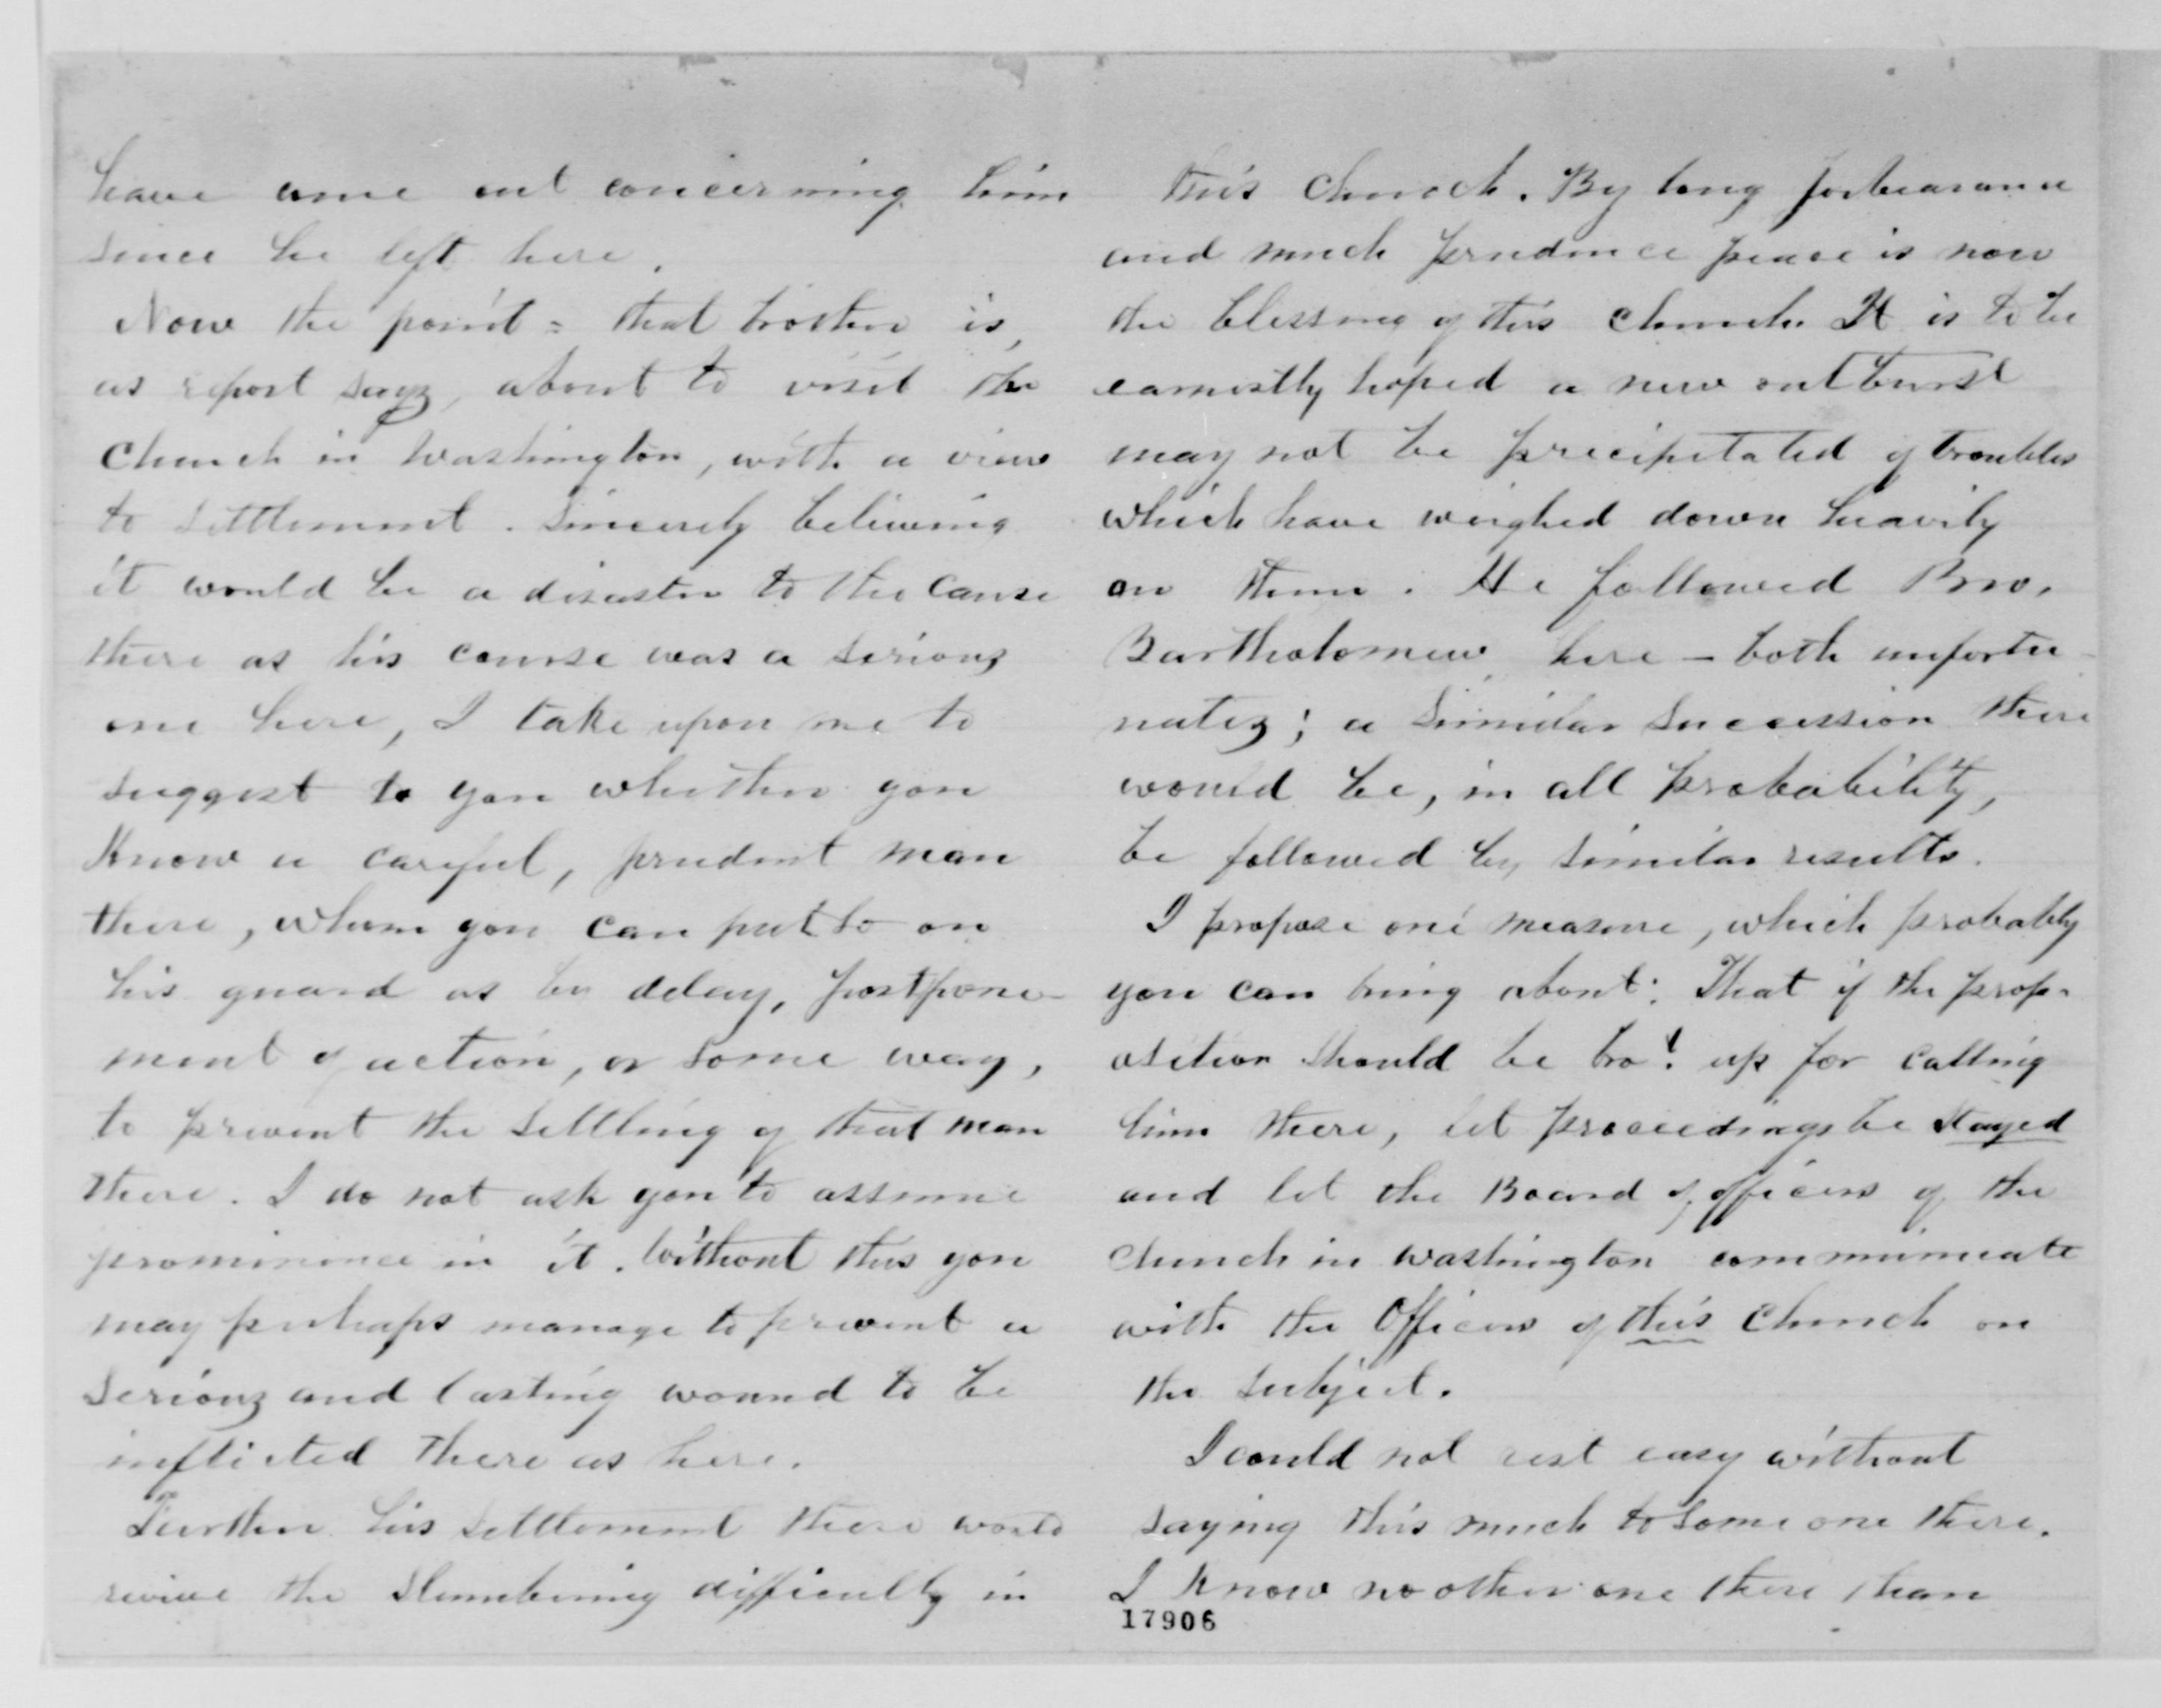 have come out concerning him
since he left here.
Now the point = that brother is,
as report says, about to visit the
church in Washington, with a view
to settlement. Sincerely believing
it would be a disaster to the cause
there as his course was a serious
one here, I take upon me to
suggest to you whether you
know a careful, prudent man
there, whom you can put so on
his guard as by delay, postpone-
ment of action, or some way,
to prevent the settling of that man
there. I do not ask you to assume
prominence in it. Without this you
may perhaps manage to prevent a
serious and lasting wound to be
inflicted there as here.
Further his settlement there would
revive the slumbering difficulty in
this church. By long forbearance
and much prudence peace is now
the blessing of this church. It is to be
earnestly hoped a new outburst
may not be precipitated of troubles
which have weighed down heavily
on them. He followed Bro.
Bartholomew here - both unfortu-
nates; a similar succession there
would be, in all probability,
be followed by similar results.
I propose one measure, which probably
you can bring about: That if the prop-
osition should be bro't up for calling
him there, let proceedings be stayed
and let the Board of officers of the
church in Washington communicate
with the Officers of this church on
the subject.
I could not rest easy without
saying this much to some one there.
I know no other one there than
17906